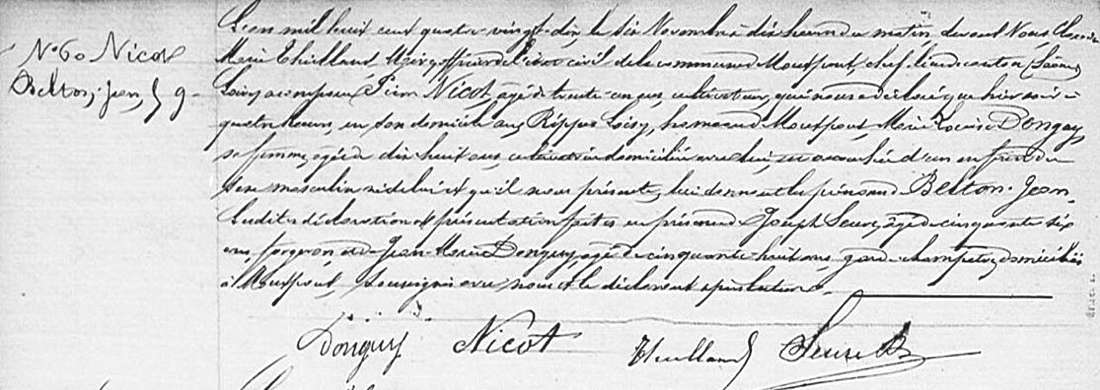 N° 60 Nicot
Belton, Jean,
L'an mil huit cent quatre vingt-dix le six Novembre à dix heures du matin devant Nous
Marie Thuilland Maire, officier de l'état civil de la commune de Montpont, chef-lieu de canton (Saône
Loire) a comparu Pierre Nicot, âgé de trente un ans, cultivateur, qui nous a déclaré que hier soir à
quatre heures, en son domicile aux Reppes Loisy, hameau de Montpont, Marie Louise Donguy,
sa femme, âgée de dix huit ans cultivatrice domiciliée avec lui, est accouchée d'un enfant du
sexe masculin né de lui et qu'il nous présente, lui donnant les prénoms de Belton-Jean
Lesdites déclaration et présentation faites en présence de Joseph Seure, âgé de cinquante six
ans, forgeron et de Jean-Marie Donguy, âgé de cinquante-huit ans, garde-champêtre, domiciliés
à Montpont, soussignés avec nous et le déclarant après lecture.
Donguy Nicot Thuilland Seure